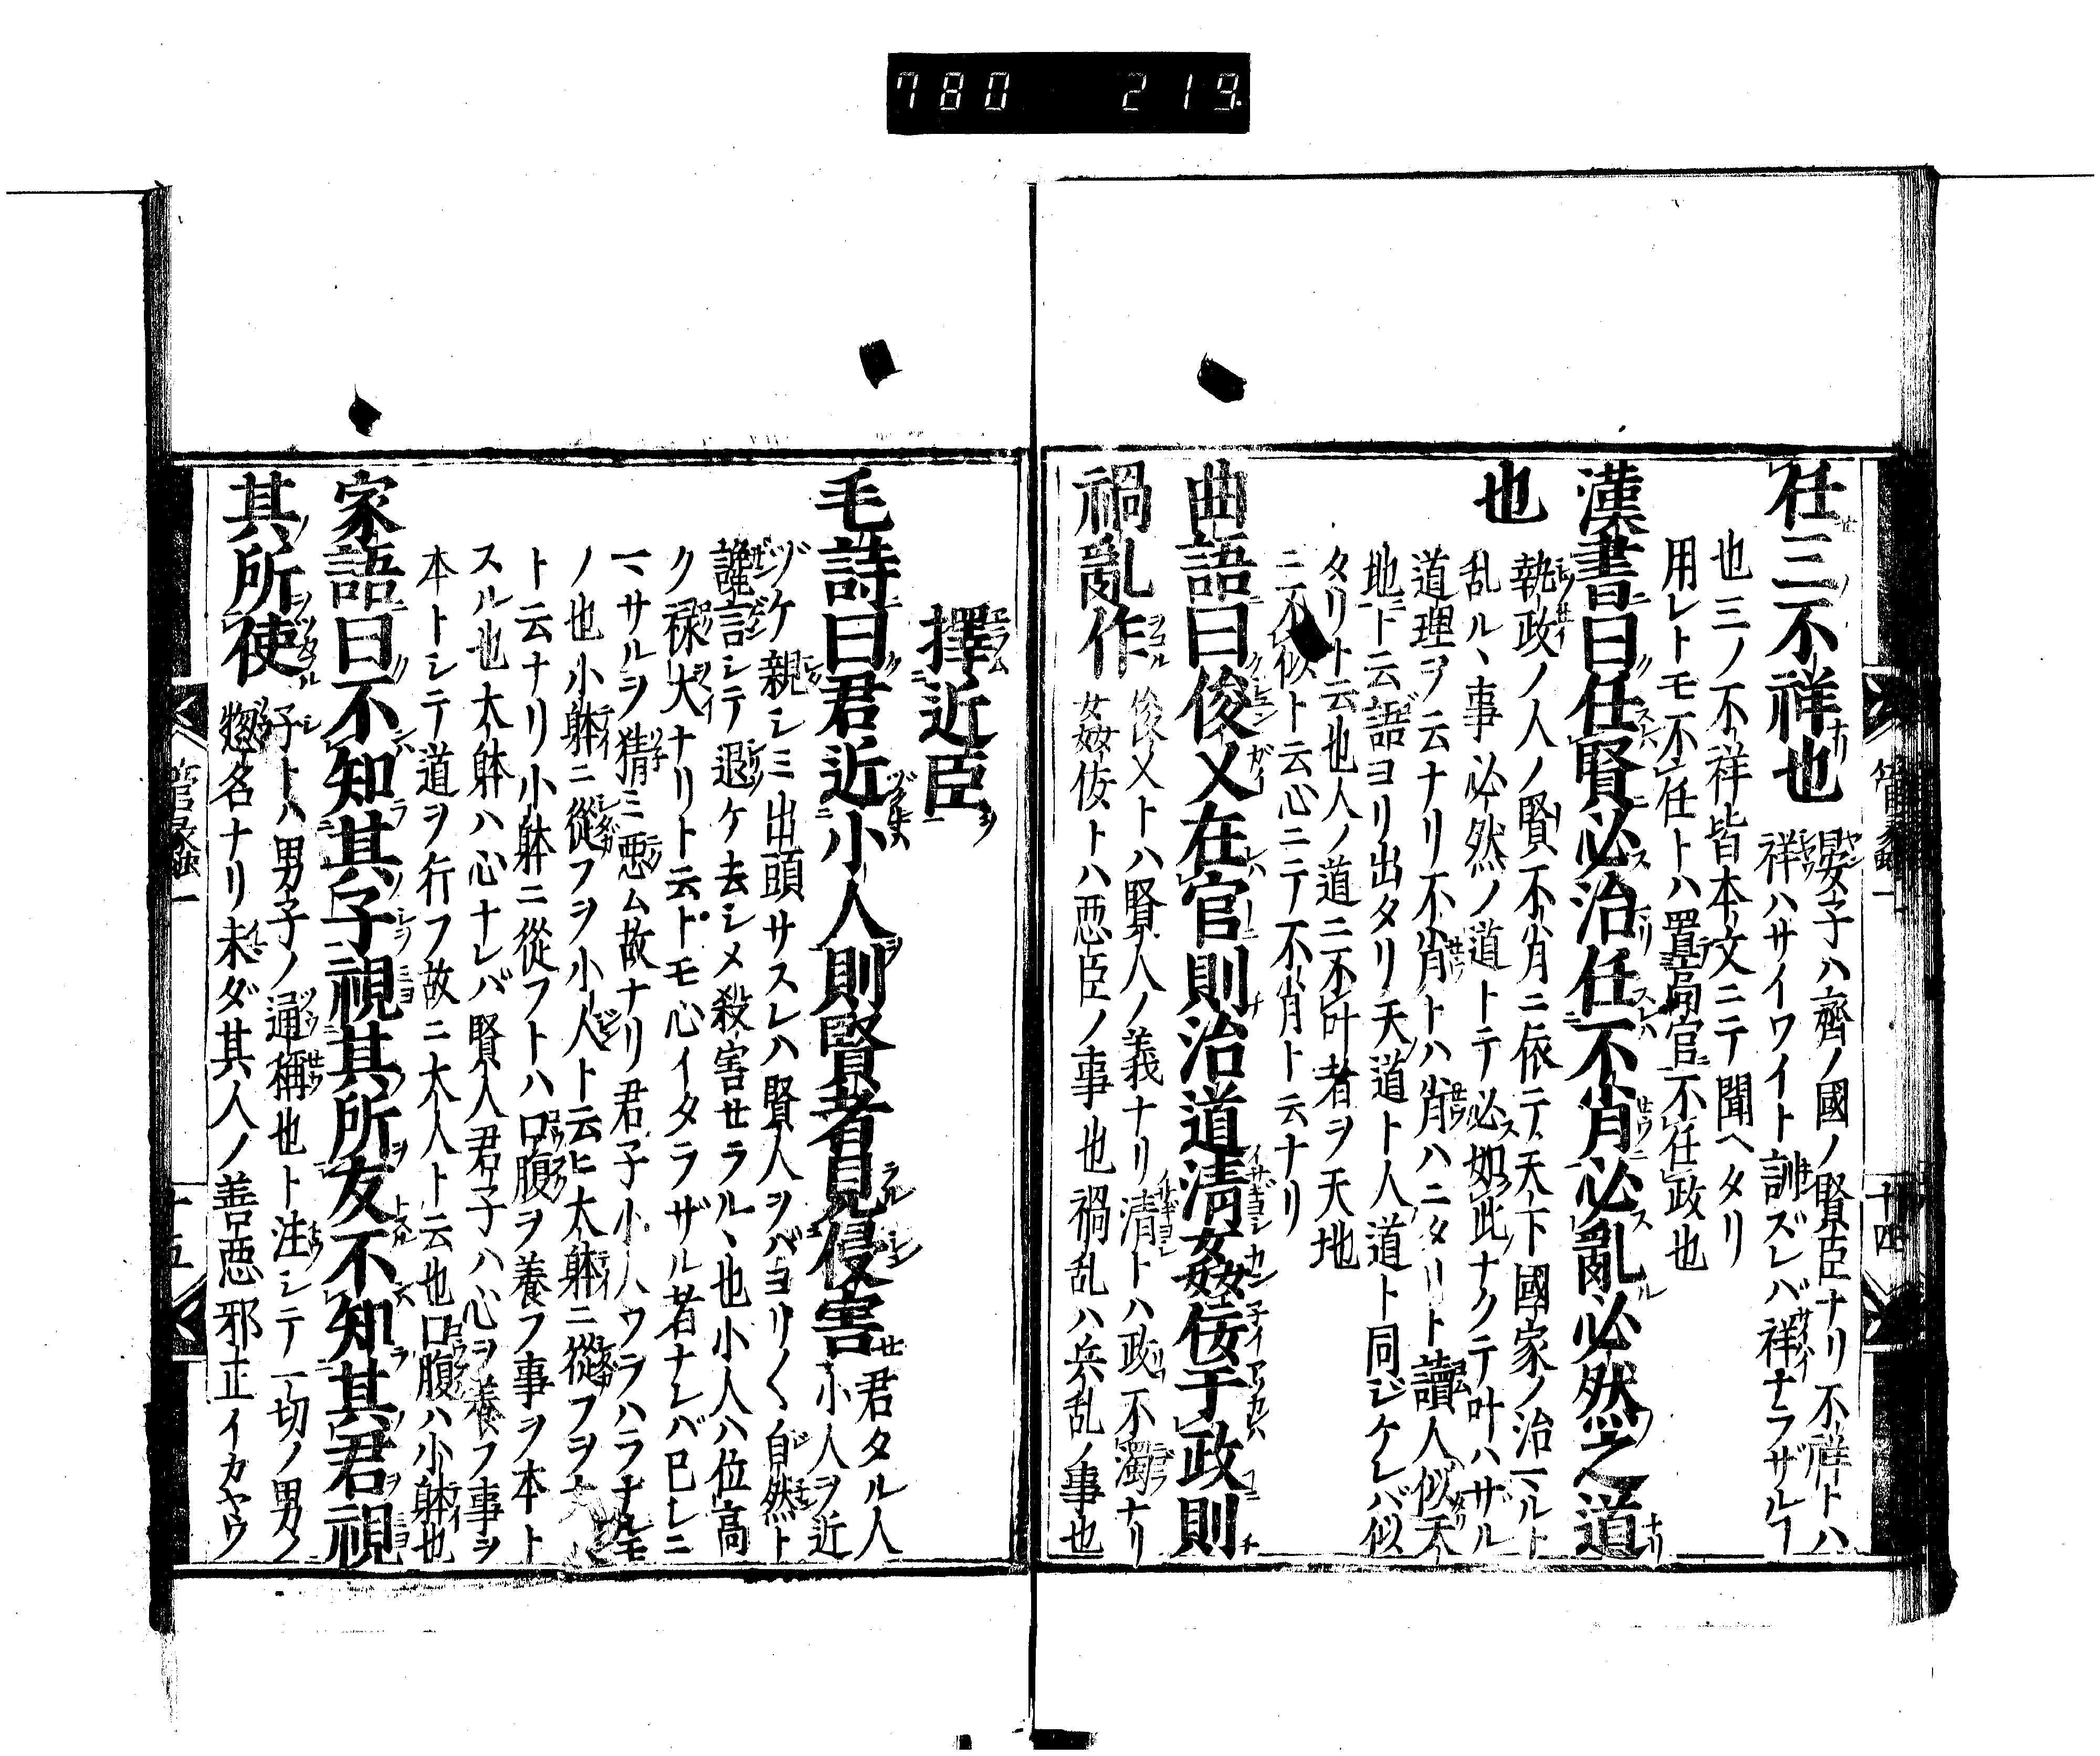 780 219
任三不祥也 晏子ハ齊ノ國ノ賢臣ナリ不祥トハ
祥ハサイワイト訓ズレバ祥ナラザルヿ
也三ノ不祥皆本文ニテ聞ヘタリ
用レトモ不任トハ置高官不任政也
漢書曰任賢必治任不肖必亂必然之道
也
執政ノ人ノ賢不肖ニ依テ天下國家ノ治ルト
乱ルヽ事必然ノ道トテ必如此ナクテ叶ハザル
道理ヲ云ナリ不肖トハ肖ハニタリト讀人似天
地ト云語ヨリ出タリ天道ト人道ト同ジケレバ似
タリト云也人ノ道ニ不叶者ヲ天地
ニ不似ト云心ニテ不肖ト云ナリ
曲語曰俊乂在官則治道淸姦佞于政則
禍亂作 俊乂トハ賢人ノ義ナリ清トハ政不濁ナリ
姦佞トハ惡臣ノ事也禍乱ハ兵乱ノ事也
擇近臣
毛詩曰君近小人則賢者見侵害 君タル人
小人ヲ近
ヅケ親シミ出頭サスレハ賢人ヲバヨリ〱自然ト
讒言シテ退ケ去シメ殺害セラルヽ也小人ハ位高
ク祿大ナリト云トモ心イタラザル者ナレバ已レニ
マサルヲ猜ミ惡ム故ナリ君子小人ウラハラナルモ
ノ也小躰ニ從フヲ小人ト云ヒ大躰ニ從フヲ
ト云ナリ小躰ニ從フトハ口腹ヲ養フ事ヲ本ト
スル也大躰ハ心ナレバ賢人君子ハ心ヲ養フ事ヲ
本トシテ道ヲ行フ故ニ大人ト云也口腹ハ小躰也
家語曰不知其子視其所友不知其君視
其所使 子トハ男子ノ通稱也ト注シテ一切ノ男ノ
惣名ナリ未ダ其人ノ善惡邪正イカヤウ
十四